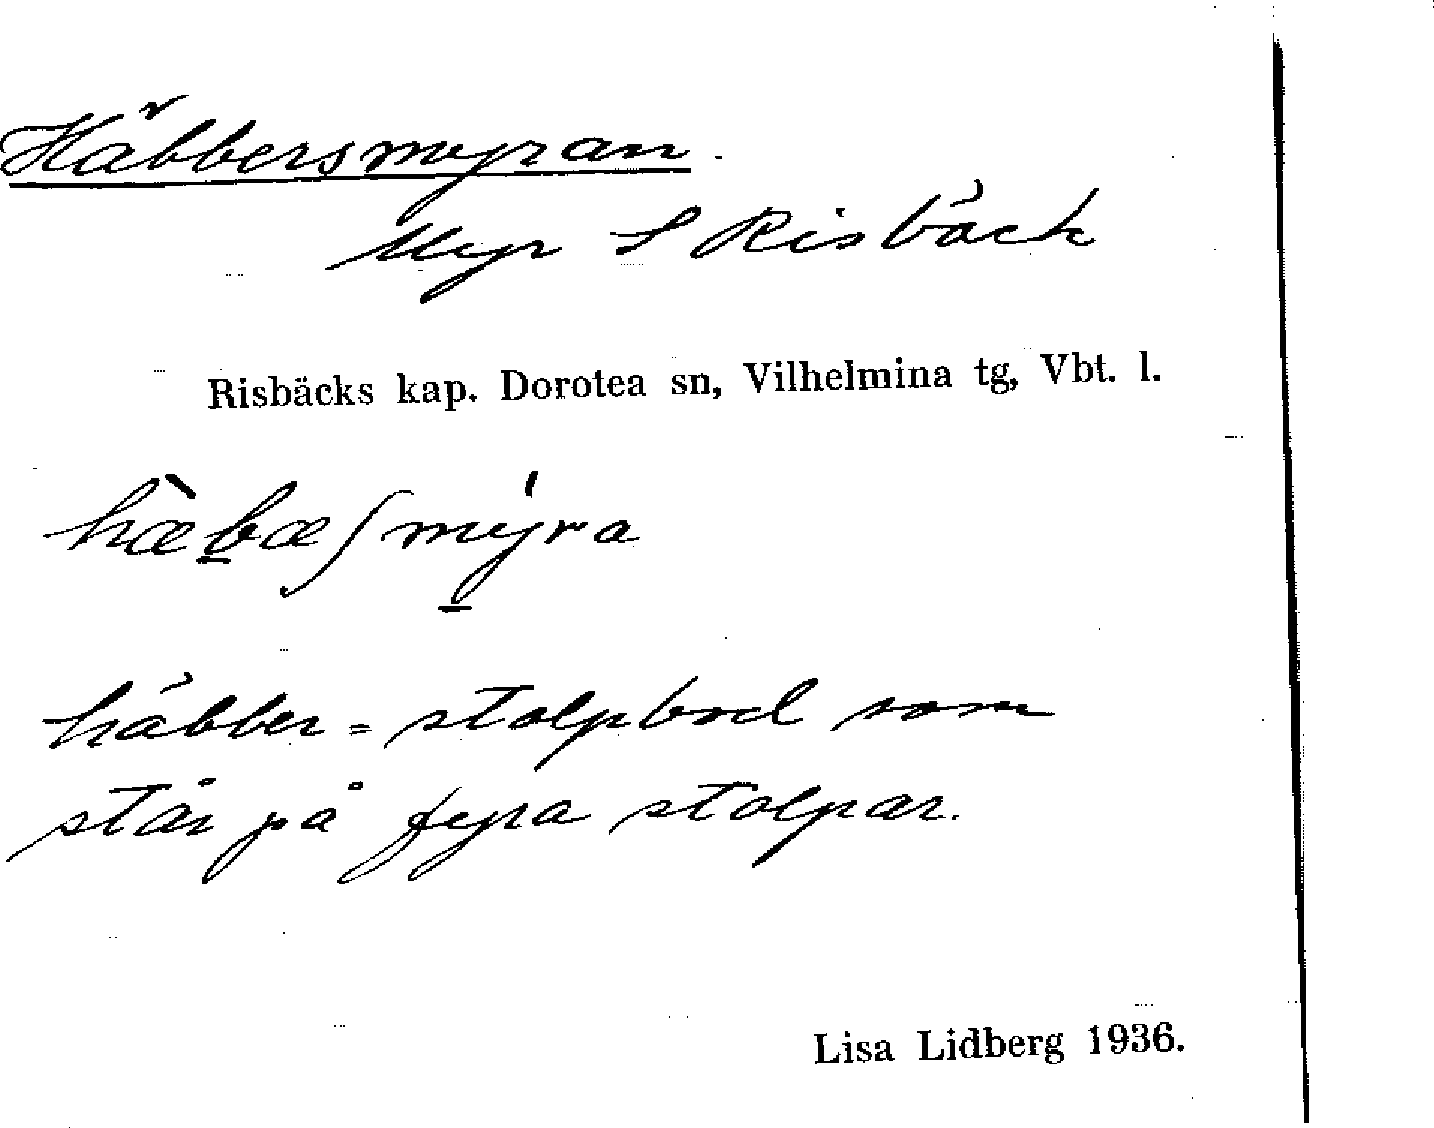 Häbbersmyran.
Myr S Risbäck
Risbäcks kap. Dorotea sn, Vilhelmina tg, Vbt. l.
hæ̀bæʃmy̍ra
häbber = stolpbod som
står på fyra stolpar.
Lisa Lidberg 1936.